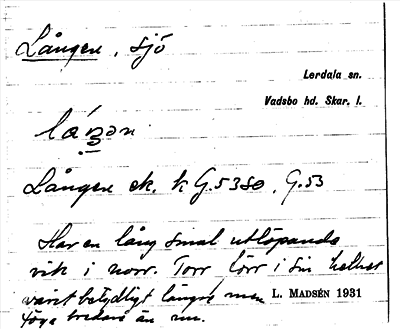 Lången, sjö
Lerdala sn.
Vadsbo hd. Skar. l.
Lången ek. k G.53SO, G.53
Har en lång smal utlöpande
vik i norr. Torr törr i sin helhet
varit betydligt längre men L. MADSÉN 1931
föga bredare än nu.